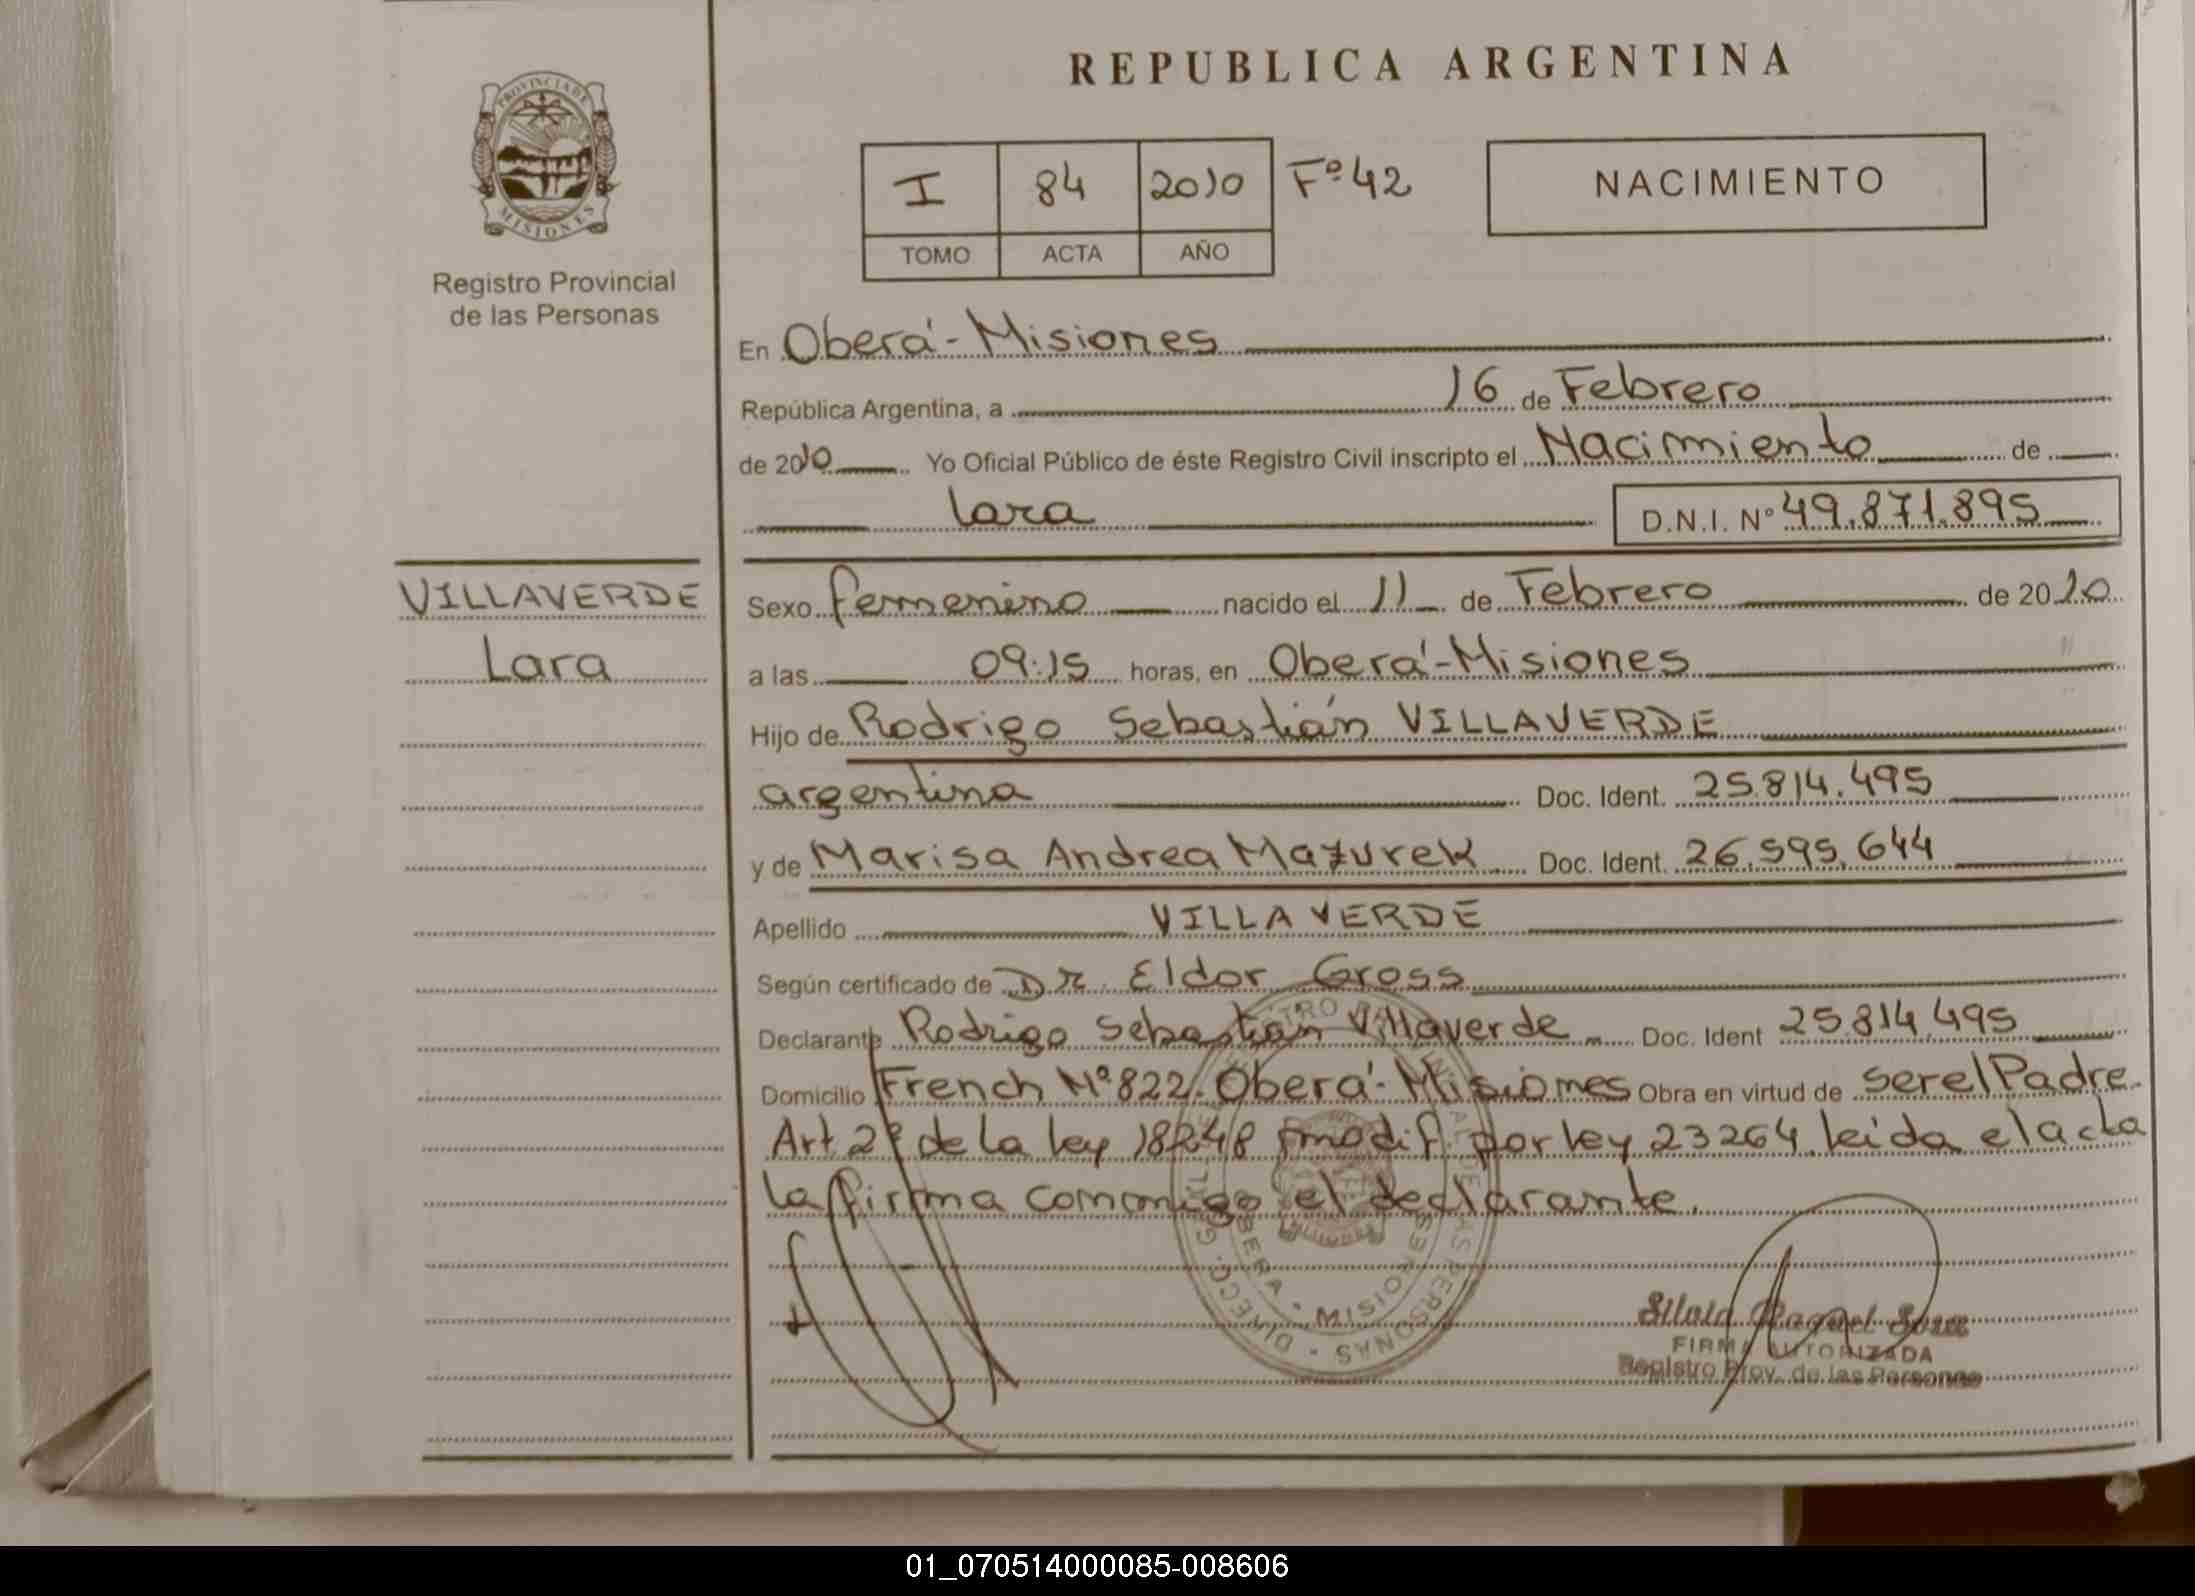 REPUBLICA ARGENTINA
PROVINCIA DE
MISIONES
Registro Provincial
de las Personas
I 84 2010 Fº 42
TOMO ACTA AÑO
NACIMIENTO
En Oberá - Misiones
República Argentina, a 16 de Febrero
de 2010 Yo Oficial Público de éste Registro Civil inscripto el Nacimiento de
Lara D.N.I. Nº 49.871.895
VILLAVERDE
Lara
Sexo femenino nacido el 11 de Febrero de 2010
a las 09:15 horas, en Oberá - Misiones
Hijo de Rodrigo Sebastián VILLAVERDE
argentina Doc. Ident. 25.814.495
y de Marisa Andrea Mazurek Doc. Ident. 26.595.644
Apellido VILLAVERDE
Según certificado de Dr. Eldor Gross
Declarante Rodrigo Sebastian Villaverde Doc. Ident 25.814.495
Domicilio French Nº 822. Oberá - Misiones Obra en virtud de ser el Padre.
Art 2º de la ley 18248 modif. por ley 23264. leida el acta
la firma conmigo el declarante.
OBERA · MISIONES
Silvia Raquel Sosa
FIRMA AUTORIZADA
Registro Prov. de las Personas
01_070514000085-008606